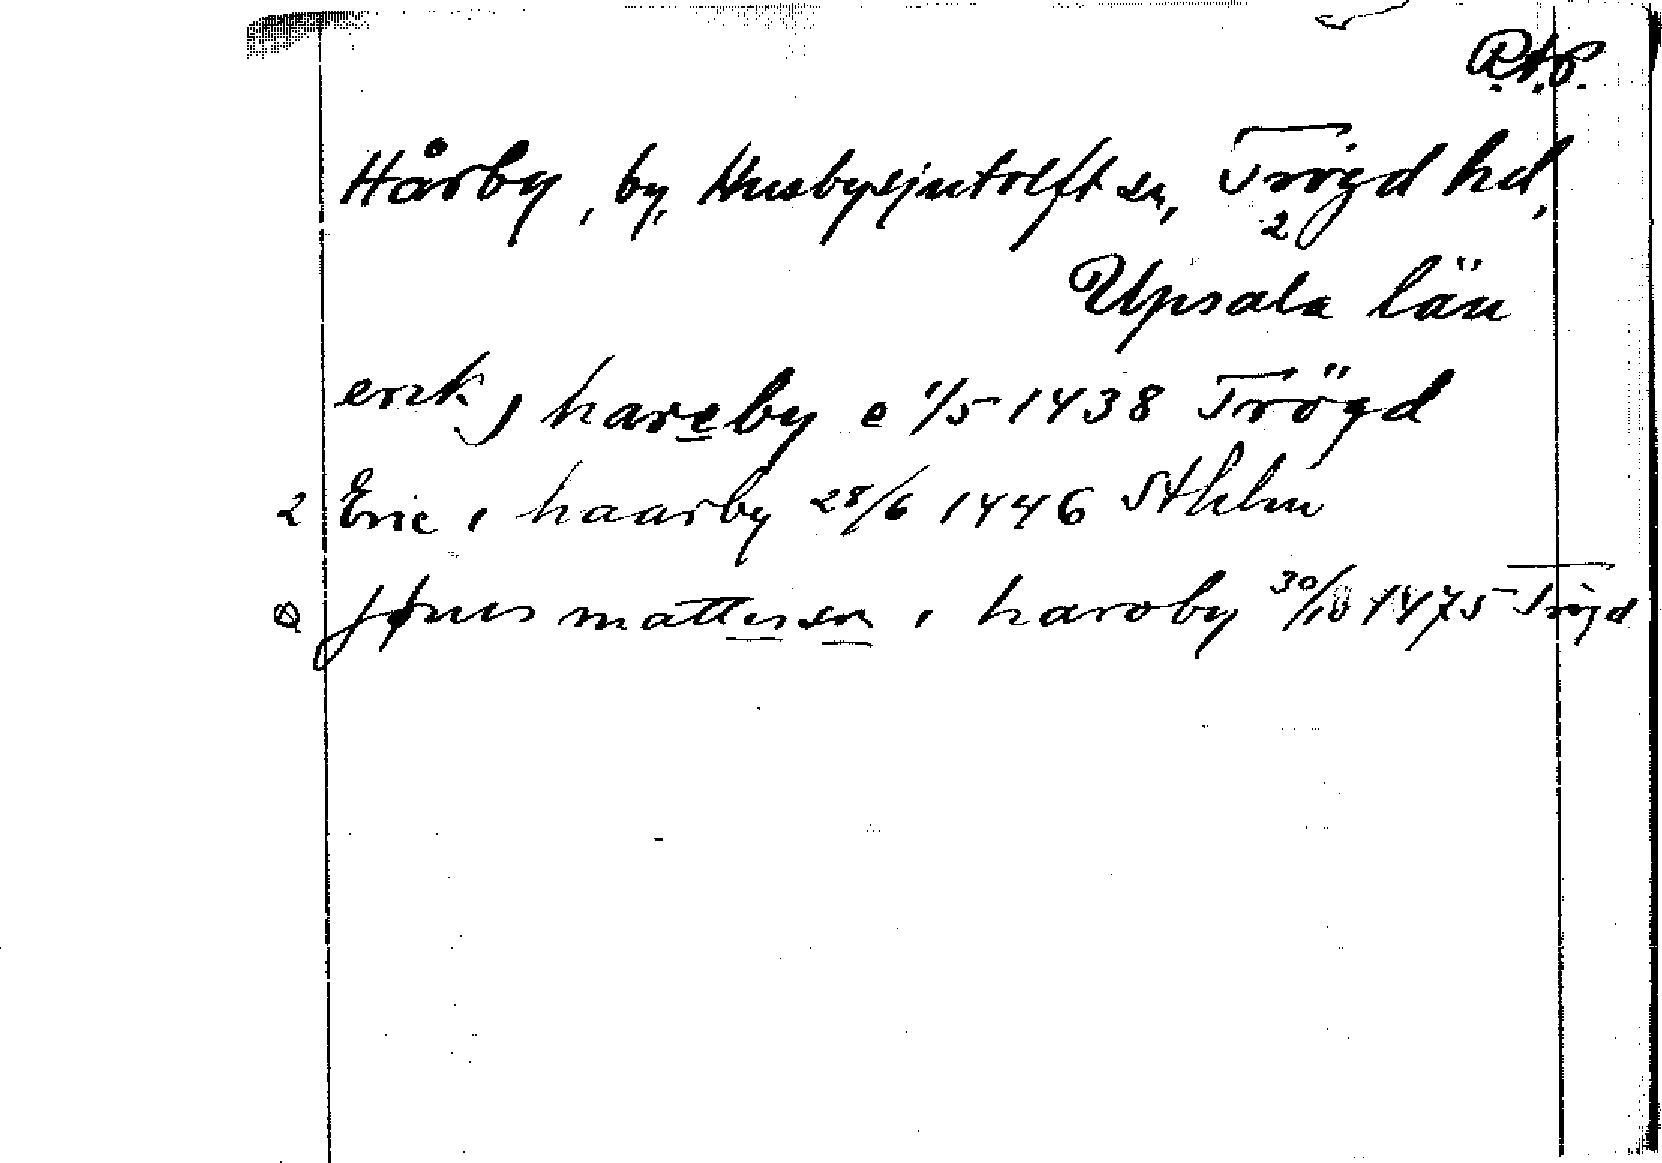 R.A.P.
Hårby, by, Husbysjutolft sn, Trögd hd,
2
Upsala län
erik j hareby e 1/5 1438 Trögd
2 Eric i haarby 28/6 1446 Sthlm
Q Jønis mattisson i haroby 30/10 1475 Trögd